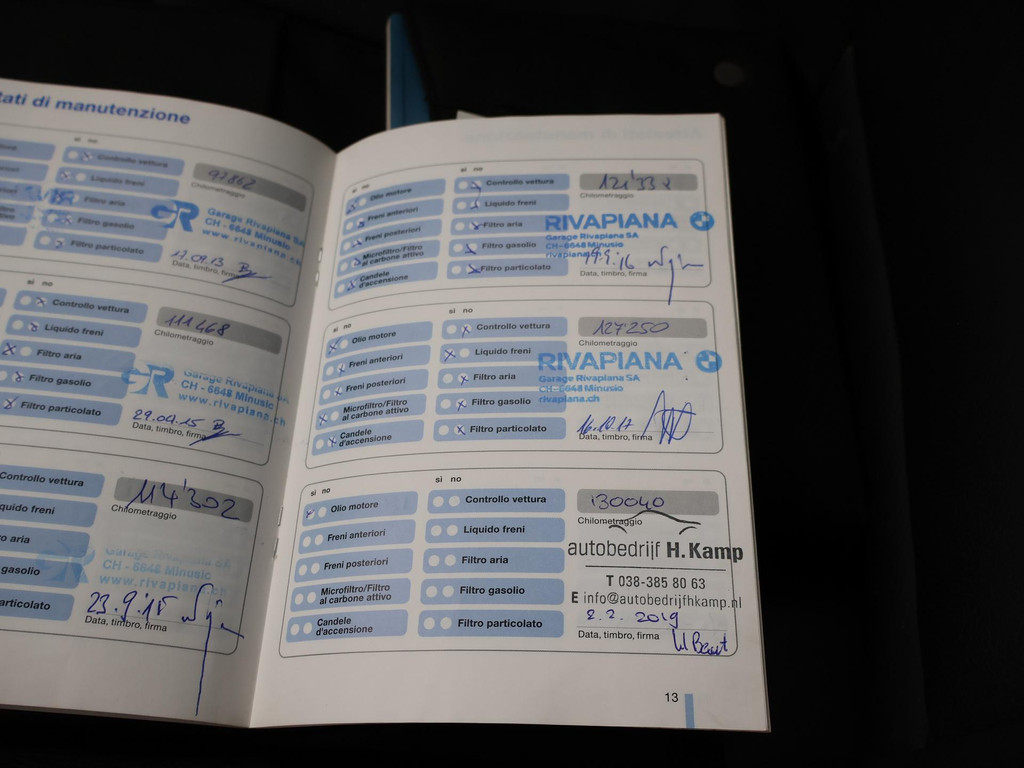 ati di manutenzione
si no
Controllo vettura
Liquido freni
Filtro aria
Filtro gasolio
Filtro particolato
92862
Chilometraggio
GR
Garage Rivapiana SA
CH - 6648 Minusio
www.rivapiana.ch
17.09.13
Data, timbro, firma
si no
Controllo vettura
Liquido freni
Filtro aria
Filtro gasolio
Filtro particolato
111468
Chilometraggio
GR
Garage Rivapiana
CH - 6648 Minusio
www.rivapiana.ch
29.04.15
Data, timbro, firma
Controllo vettura
quido freni
o aria
gasolio
articolato
114'302
Chilometraggio
Garage Rivapiana SA
CH - 6648 Minusio
www.rivapiana.ch
23.9.15
Data, timbro, firma
si no
Olio motore
Freni anteriori
Freni posteriori
Microfiltro/Filtro
al carbone attivo
Candele
d'accensione
si no
Controllo vettura
Liquido freni
Filtro aria
Filtro gasolio
Filtro particolato
Chilometraggio
RIVAPIANA
Garage Rivapiana SA
CH - 6648 Minusio
rivapiana.ch
19.9.16
Data, timbro, firma
si no
Olio motore
Freni anteriori
Freni posteriori
Microfiltro/Filtro
al carbone attivo
Candele
d'accensione
si no
Controllo vettura
Liquido freni
Filtro aria
Filtro gasolio
Filtro particolato
127250
Chilometraggio
RIVAPIANA
Garage Rivapiana SA
CH - 6648 Minusio
rivapiana.ch
16.10.17
Data, timbro, firma
si no
Olio motore
Freni anteriori
Freni posteriori
Microfiltro/Filtro
al carbone attivo
Candele
d'accensione
si no
Controllo vettura
Liquido freni
Filtro aria
Filtro gasolio
Filtro particolato
130040
Chilometraggio
autobedrijf H. Kamp
T 038-385 80 63
E info@autobedrijfhkamp.nl
2.2.2019
Data, timbro, firma
13